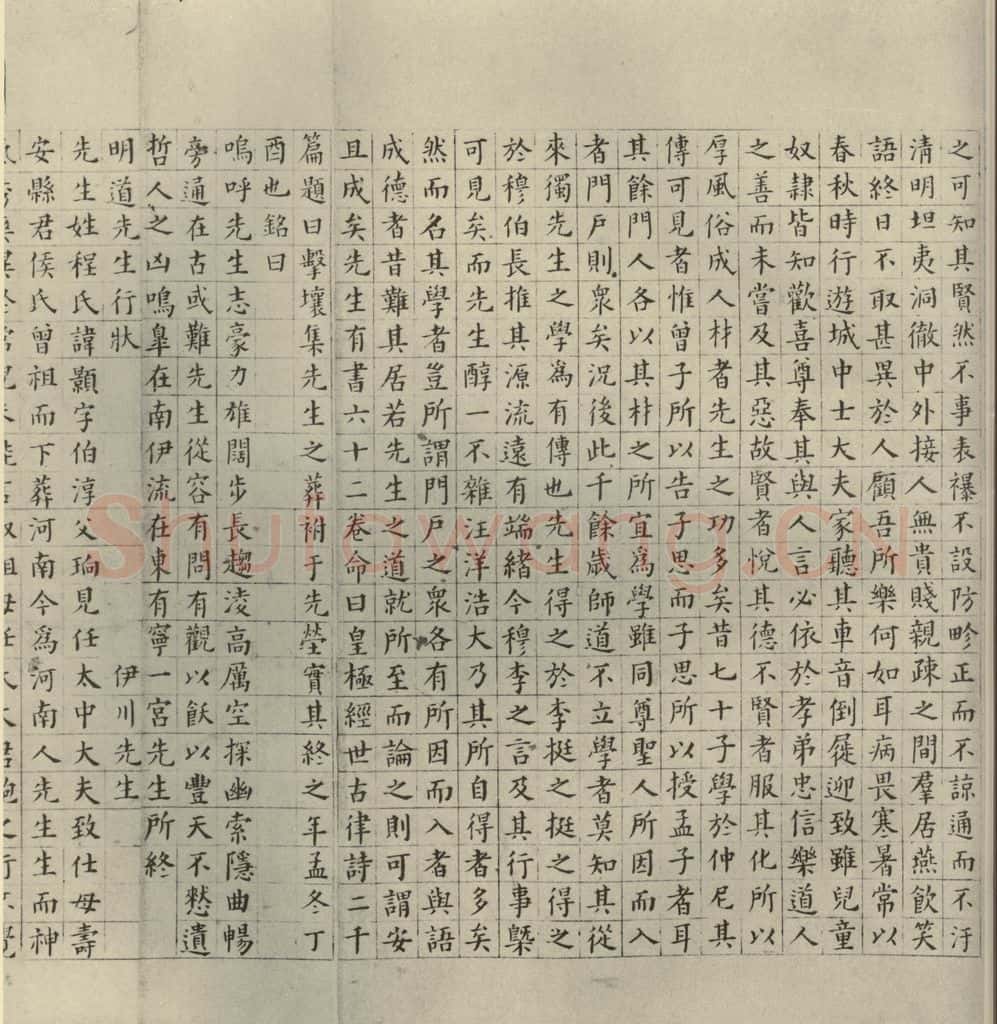 之可知其賢然不事表襮不設防畛正而不諒通而不汙
清明坦夷洞徹中外接人無貴賤親疎之間羣居燕飲笑
語終日不取甚異於人顧吾所樂何如耳病畏寒暑常以
春秋時行遊城中士大夫家聽其車音倒屣迎致雖兒童
奴隸皆知歡喜尊奉其與人言必依於孝弟忠信樂道人
之善而未嘗及其惡故賢者悅其德不賢者服其化所以
厚風俗成人材者先生之功多矣昔七十子學於仲尼其
傳可見者惟曾子所以告子思而子思所以授孟子者耳
其餘門人各以其材之所宜爲學雖同尊聖人所因而入
者門戶則衆矣況後此千餘歲師道不立學者莫知其從
來獨先生之學爲有傳也先生得之於李挺之挺之得之
於穆伯長推其源流遠有端緒今穆李之言及其行事槩
可見矣而先生醇一不雜汪洋浩大乃其所自得者多矣
然而名其學者豈所謂門戶之衆各有所因而入者與語
成德者昔難其居若先生之道就所至而論之則可謂安
且成矣先生有書六十二卷命曰皇極經世古律詩二千
篇題曰擊壤集先生之葬祔于先塋實其終之年孟冬丁
酉也銘曰
嗚呼先生志豪力雄闊步長趨淩高厲空探幽索隱曲暢
旁通在古或難先生從容有問有觀以飫以豐天不憖遺
哲人之凶鳴臯在南伊流在東有寧一宮先生所終
明道先生行狀 伊川先生
先生姓程氏諱顥字伯淳父珦見任太中大夫致仕母壽
安縣君侯氏曾祖而下葬河南今爲河南人先生生而神
Shufawang.CN